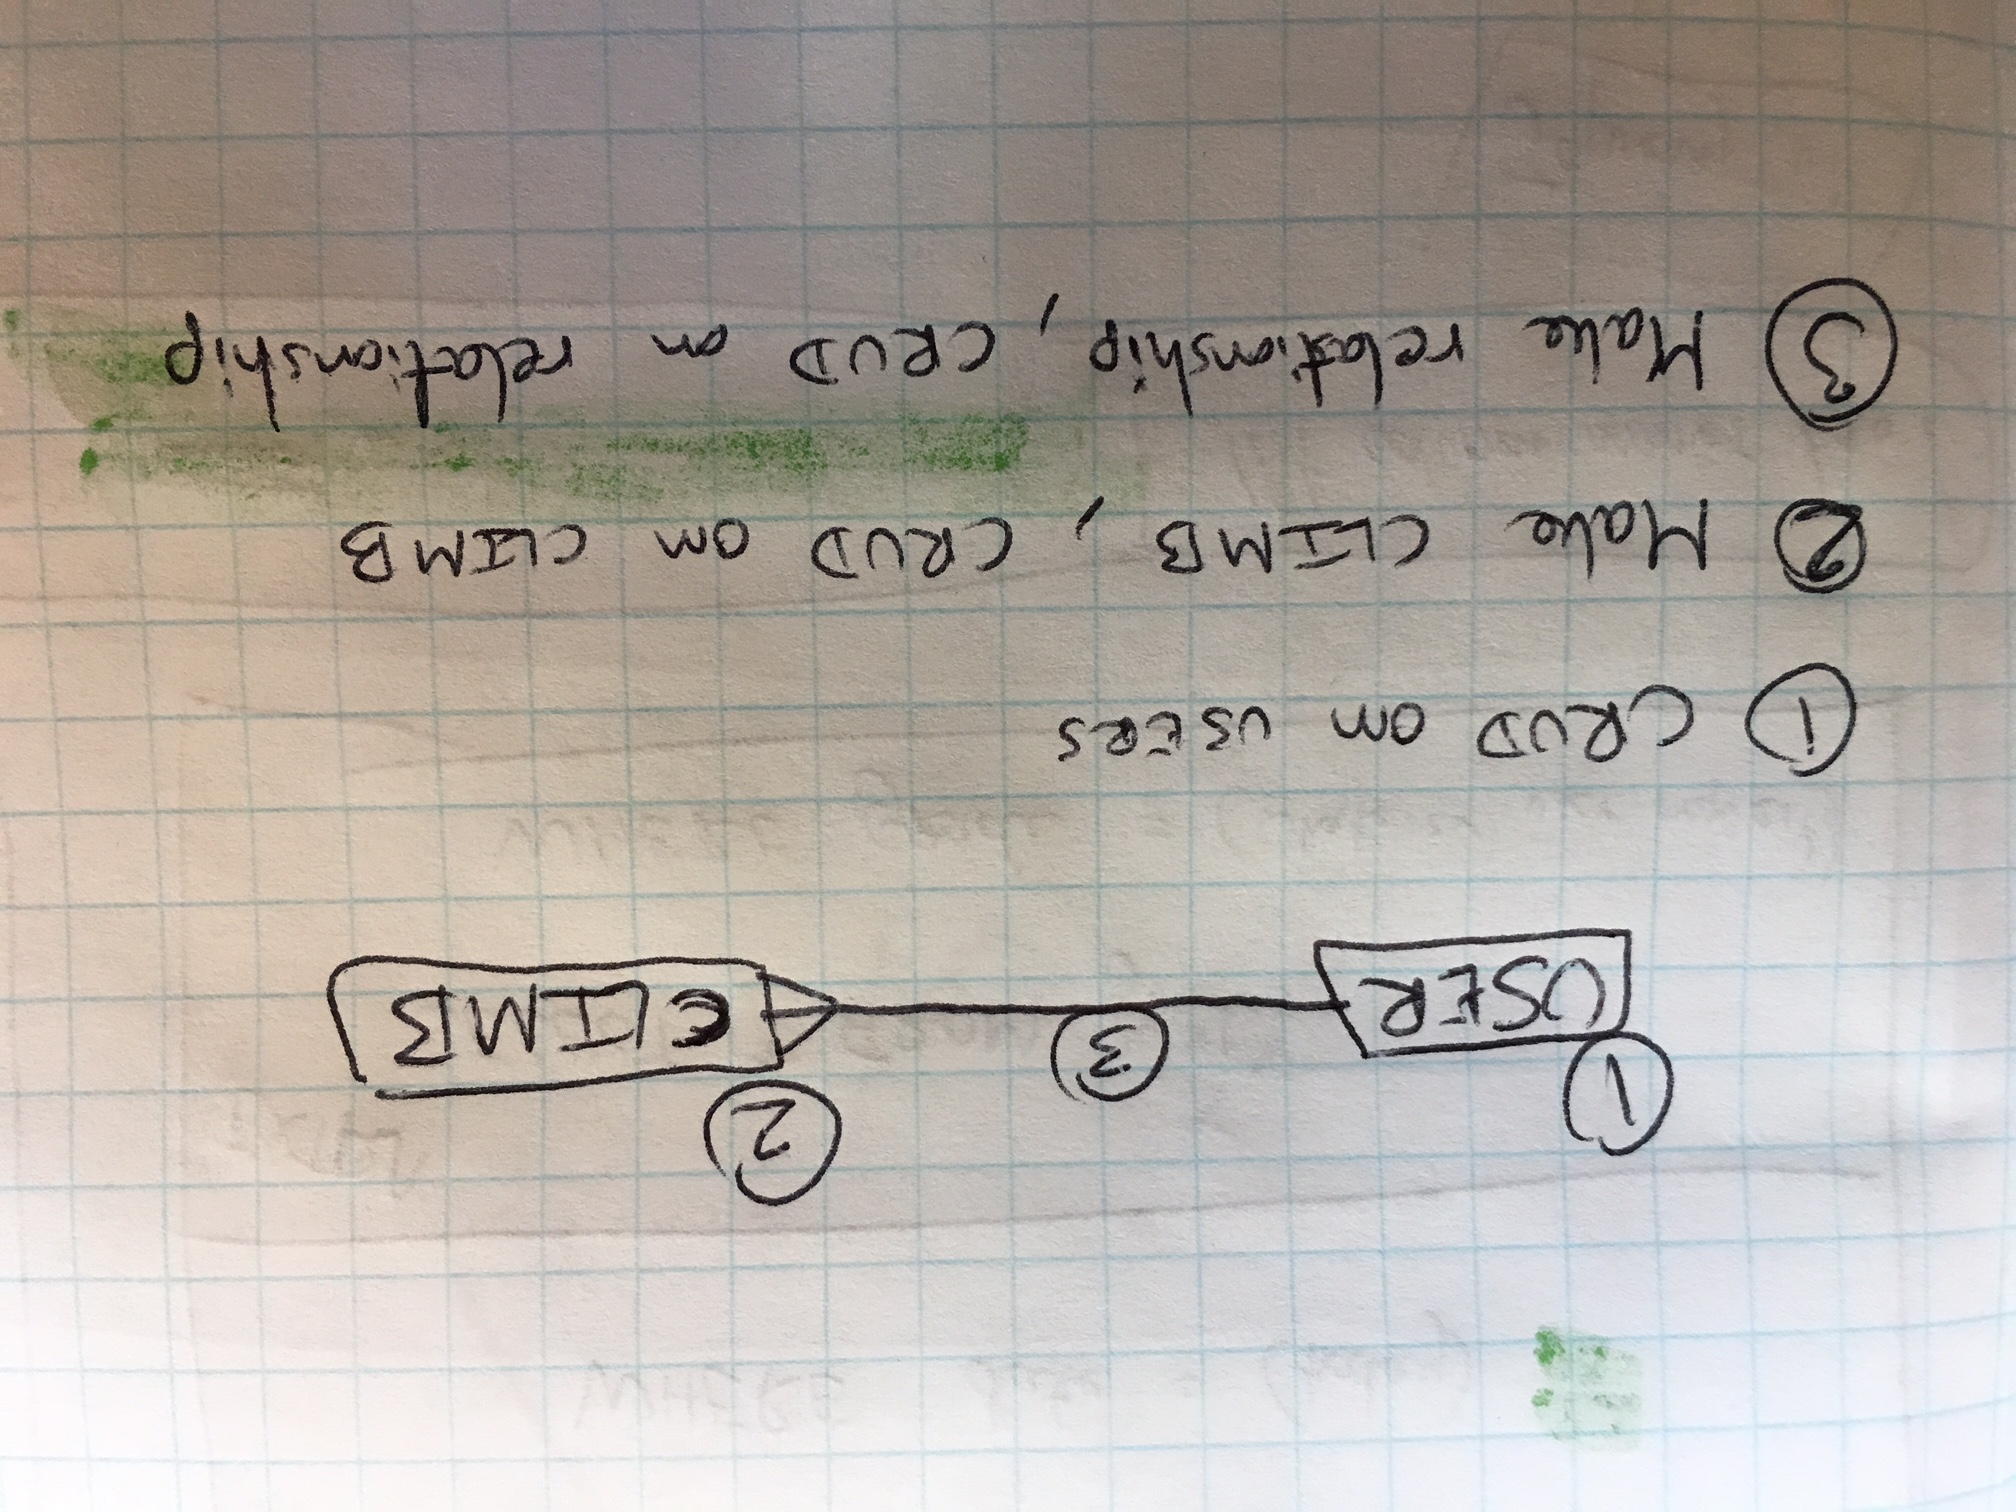 ① ② ③
USER CLIMB
① CRUD on USERS
② Make CLIMB, CRUD on CLIMB
③ Make relationship, CRUD on relationship